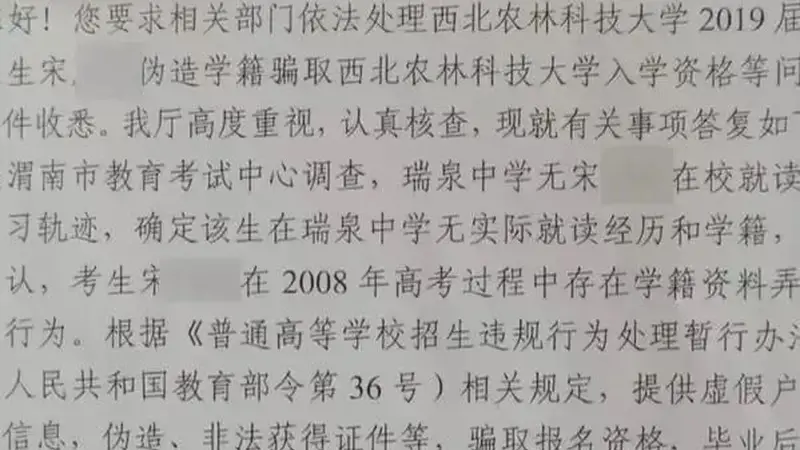 好！您要求相关部门依法处理西北农林科技大学 2019 届
生宋 伪造学籍骗取西北农林科技大学入学资格等问
件收悉。我厅高度重视，认真核查，现就有关事项答复如
渭南市教育考试中心调查，瑞泉中学无宋 在校就读
习轨迹，确定该生在瑞泉中学无实际就读经历和学籍，
认，考生宋 在 2008 年高考过程中存在学籍资料弄
行为。根据《普通高等学校招生违规行为处理暂行办
人民共和国教育部令第 36 号）相关规定，提供虚假户
信息，伪造、非法获得证件等，骗取报名资格，毕业后